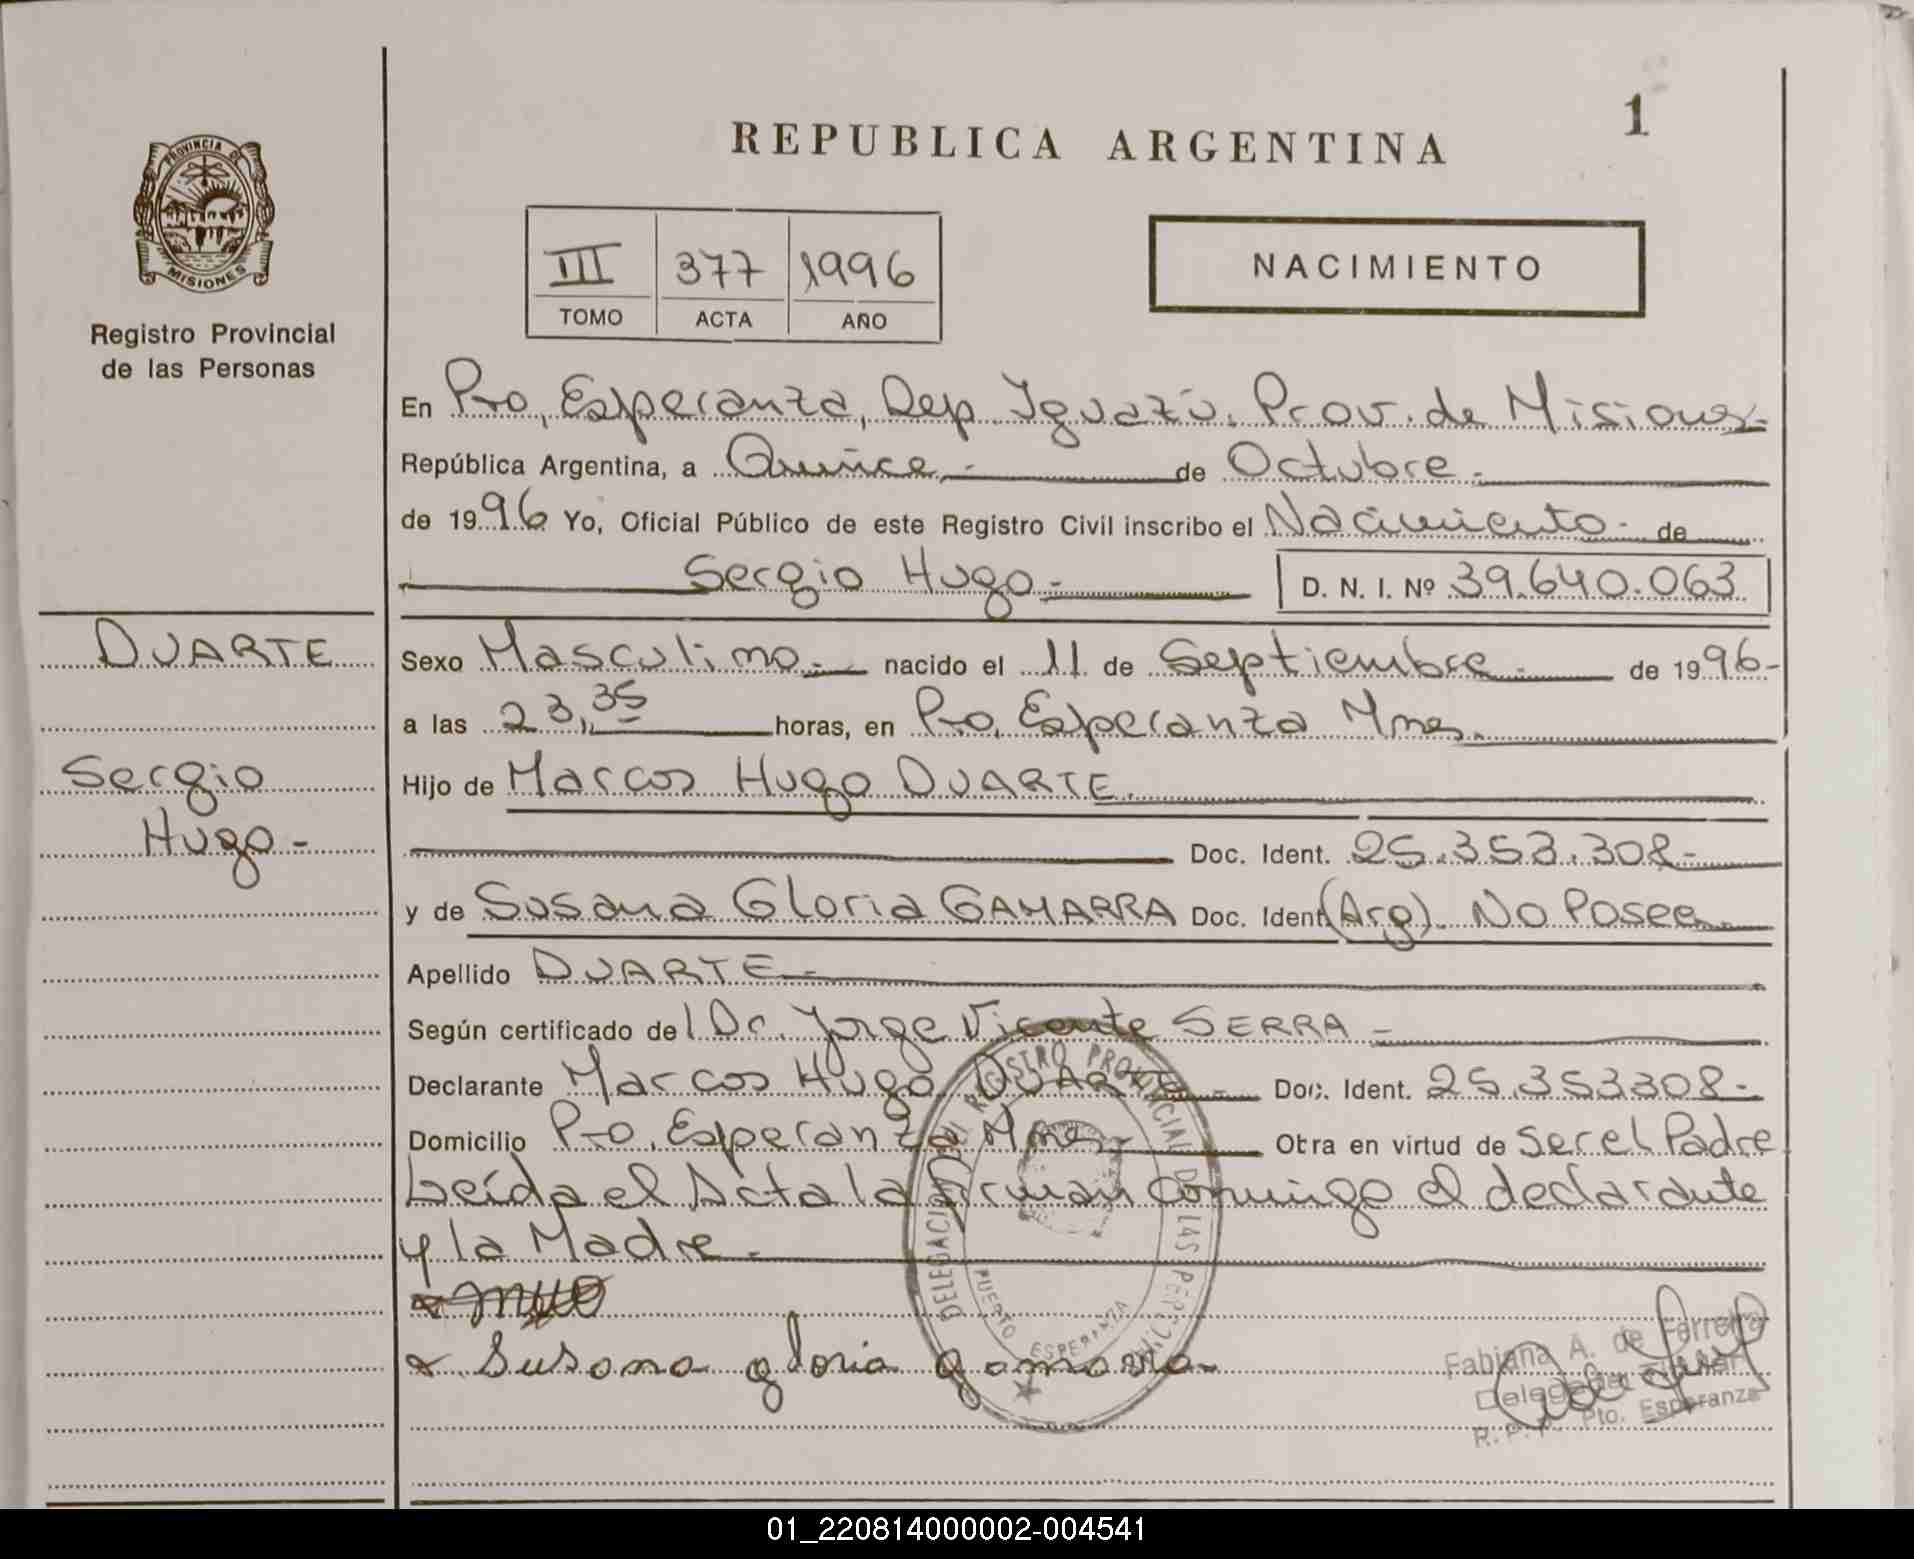 PROVINCIA DE
MISIONES
Registro Provincial
de las Personas
DUARTE
Sergio
Hugo-
1
REPUBLICA ARGENTINA
III 377 1996
TOMO ACTA AÑO
NACIMIENTO
En Pto, Esperanza, Dep. Iguazú. Prov. de Misiones-
República Argentina, a Quince.- de Octubre.-
de 1996 Yo, Oficial Público de este Registro Civil inscribo el Nacimiento- de
Sergio Hugo.- D. N. I. Nº 39.640.063
Sexo Masculino.- nacido el 11 de Septiembre.- de 1996-
a las 23,35 horas, en Pto. Esperanza Mnes.
Hijo de Marcos Hugo DUARTE.
Doc. Ident. 25.353.308-
y de Susana Gloria GAMARRA Doc. Ident. (Arg). No Posee.
Apellido DUARTE-
Según certificado del Dr. Jorge Vicente SERRA-
Declarante Marcos Hugo DUARTE- Doc. Ident. 25.353308-
Domicilio Pto. Esperanza Mnes.- Obra en virtud de Ser el Padre
Leída el Acta la firman conmigo el declarante
y la Madre.-
Susana gloria gamarra
DELEGACION REGISTRO PROVINCIAL DE LAS PERSONAS
PUERTO ESPERANZA
Fabiana A. de Ferreira
Delegada Titular
R. P. P. Pto. Esperanza
01_220814000002-004541